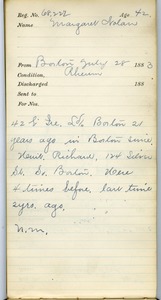 Reg. No. 68,222 Age 42
Name Margaret Nolan
From Boston July 28 1883
Condition,
Discharged 188
Sent to
For Nos.
42 S Ire. Boston 21
years ago in Boston since,
Richard, 124 Silver
St. So. Boston. Here
4 times before, last time
2 yrs. ago.